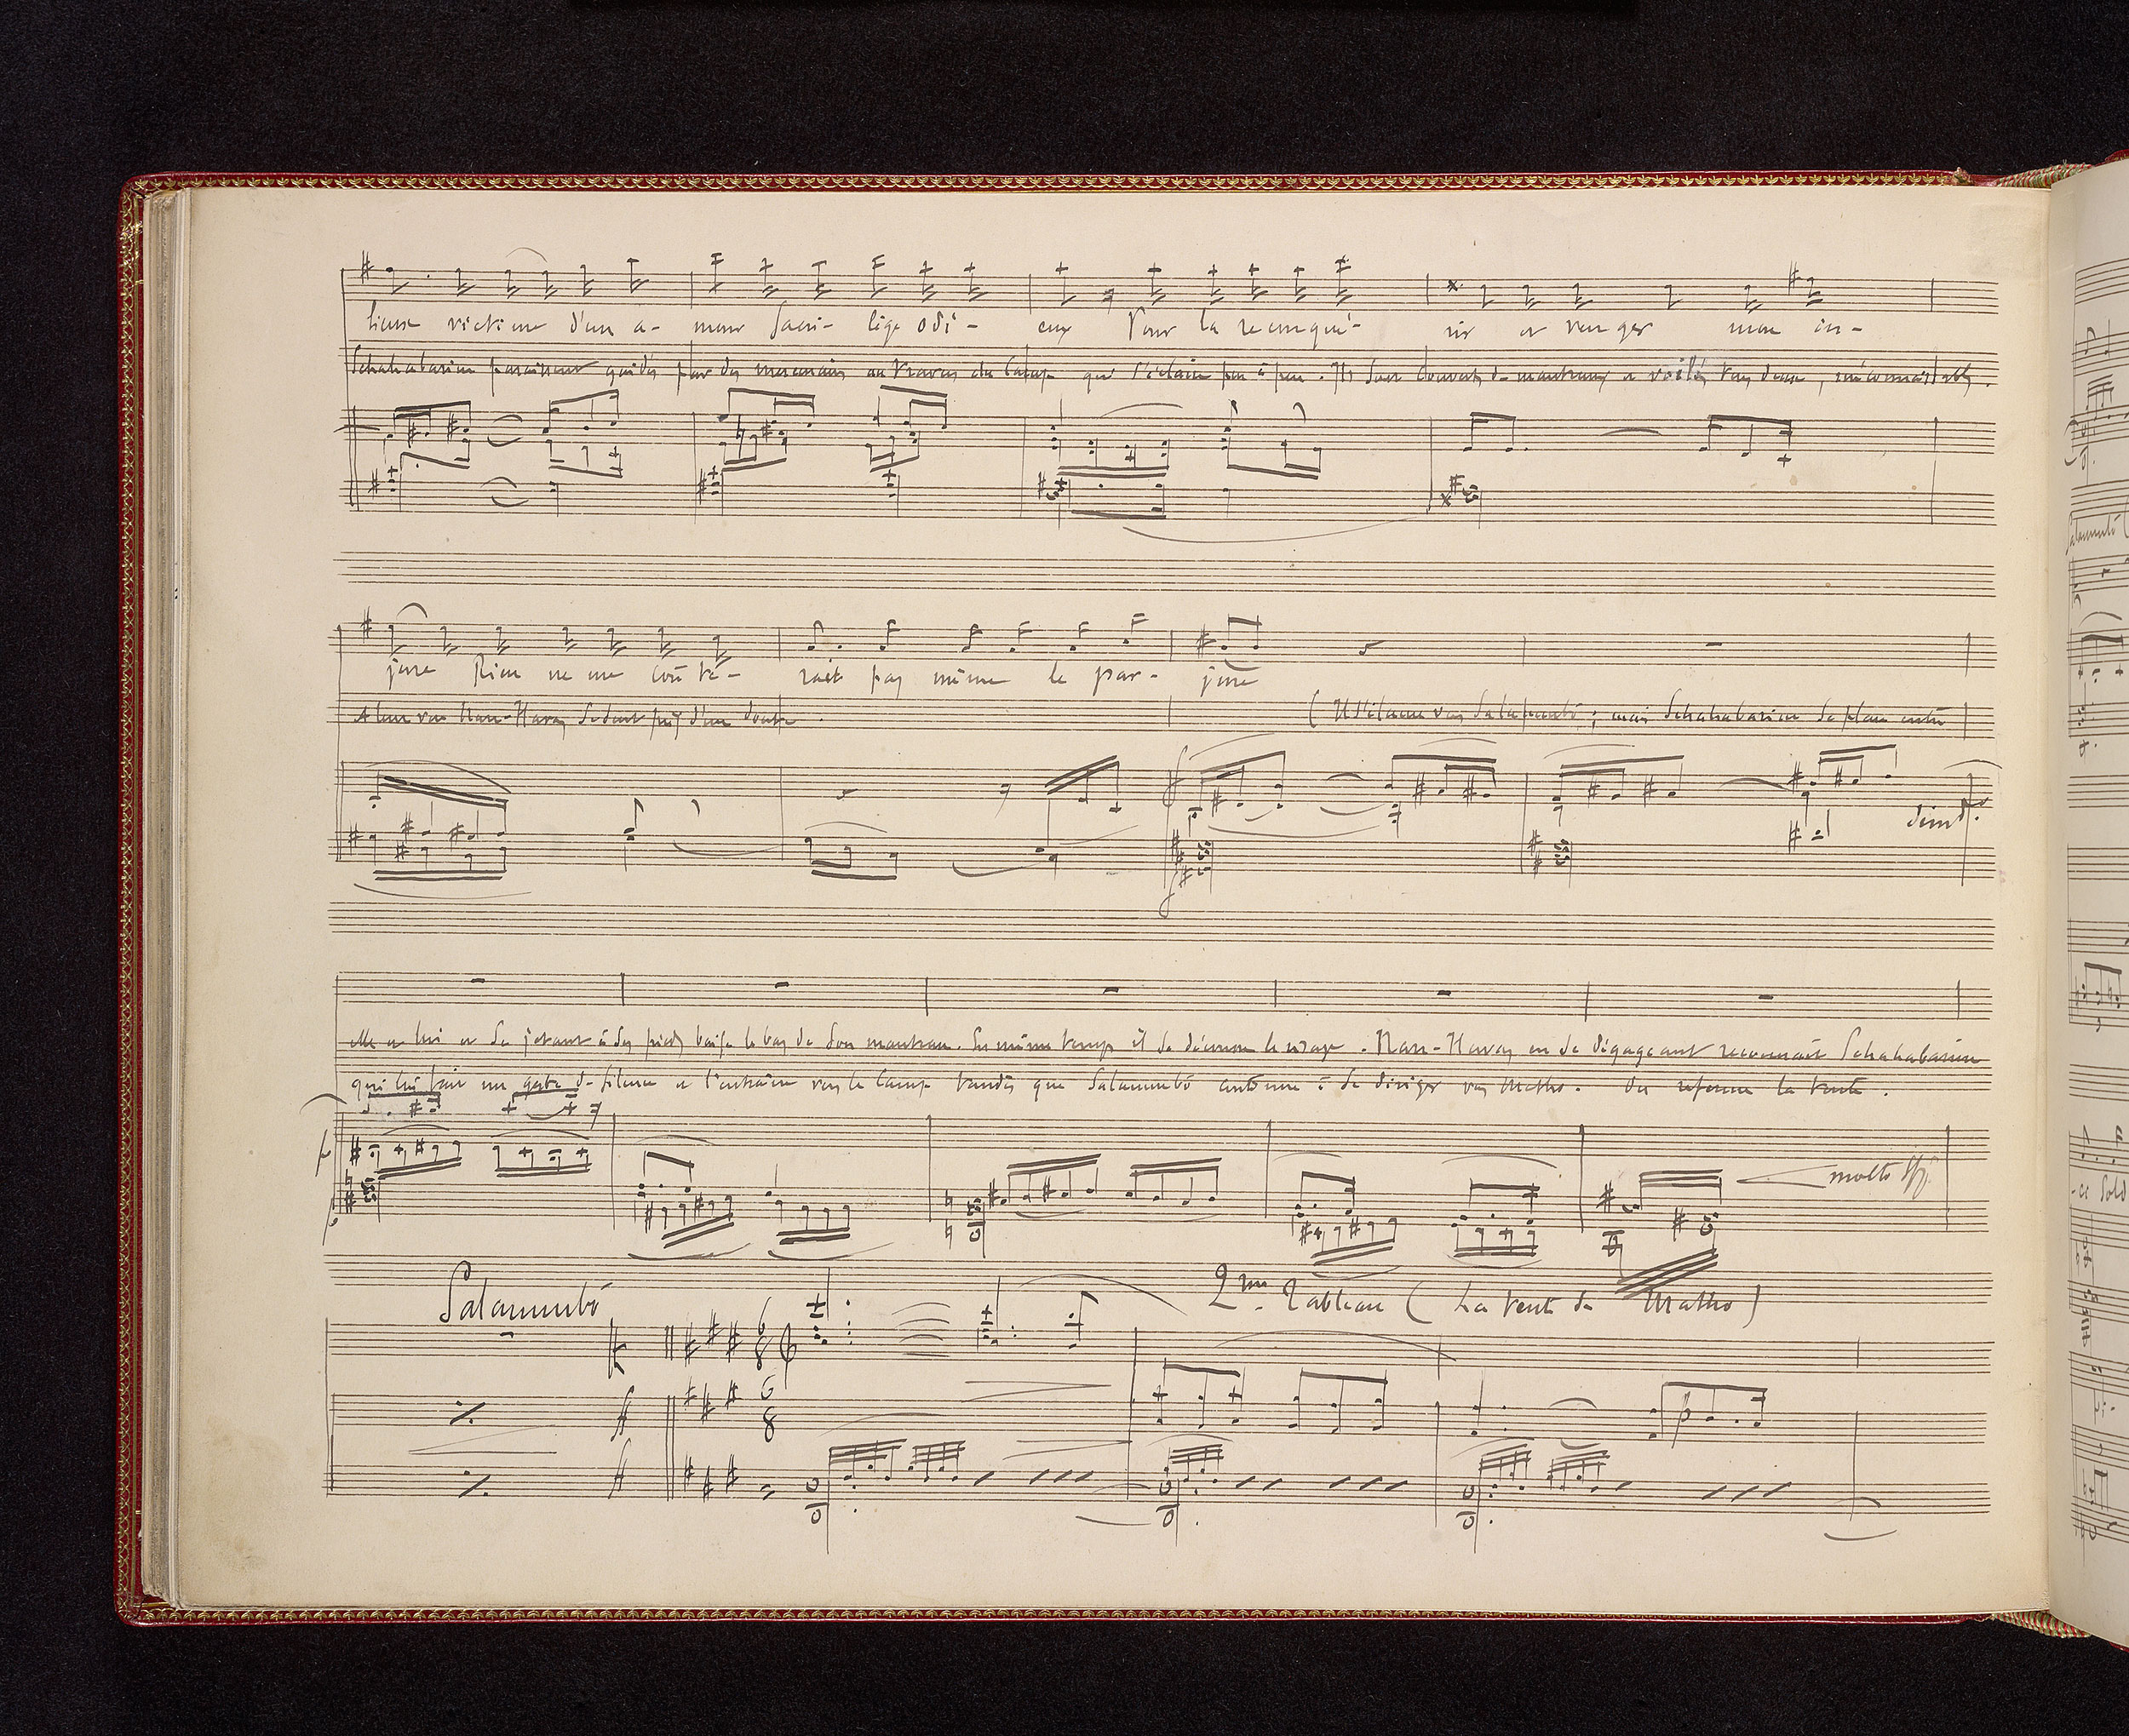 lieuse victime d'un a- mour sacri- lège odi- eux Pour la reconqué- rir et venger mon in-
Schahabarim paraissent guidés par des mercenaires au travers du Camp qui s'éclaire peu à peu. Ils sont couverts de manteaux et voilés tous deux, méconnaissables.
jure Rien ne me coûte- rait pas même le par- jure
Alors vers Narr-Havas se tient près d'une tente. (Il s'élance vers Salammbô; mais Schahabarim se place entre
dim
elle et lui et se jetant à ses pieds baise le bas de son manteau. En même temps il se découvre le visage. Narr-Havas en se dégageant reconnaît Schahabarim
qui lui fait un geste de silence et l'entraîne vers le Camp tandis que Salammbô continue à se diriger vers Matho. On referme la tente.
molto sff
Salammbô 2me Tableau (La tente de Matho)
6 8
ff 6 8 p
ff
Salammbô
-ce Sold